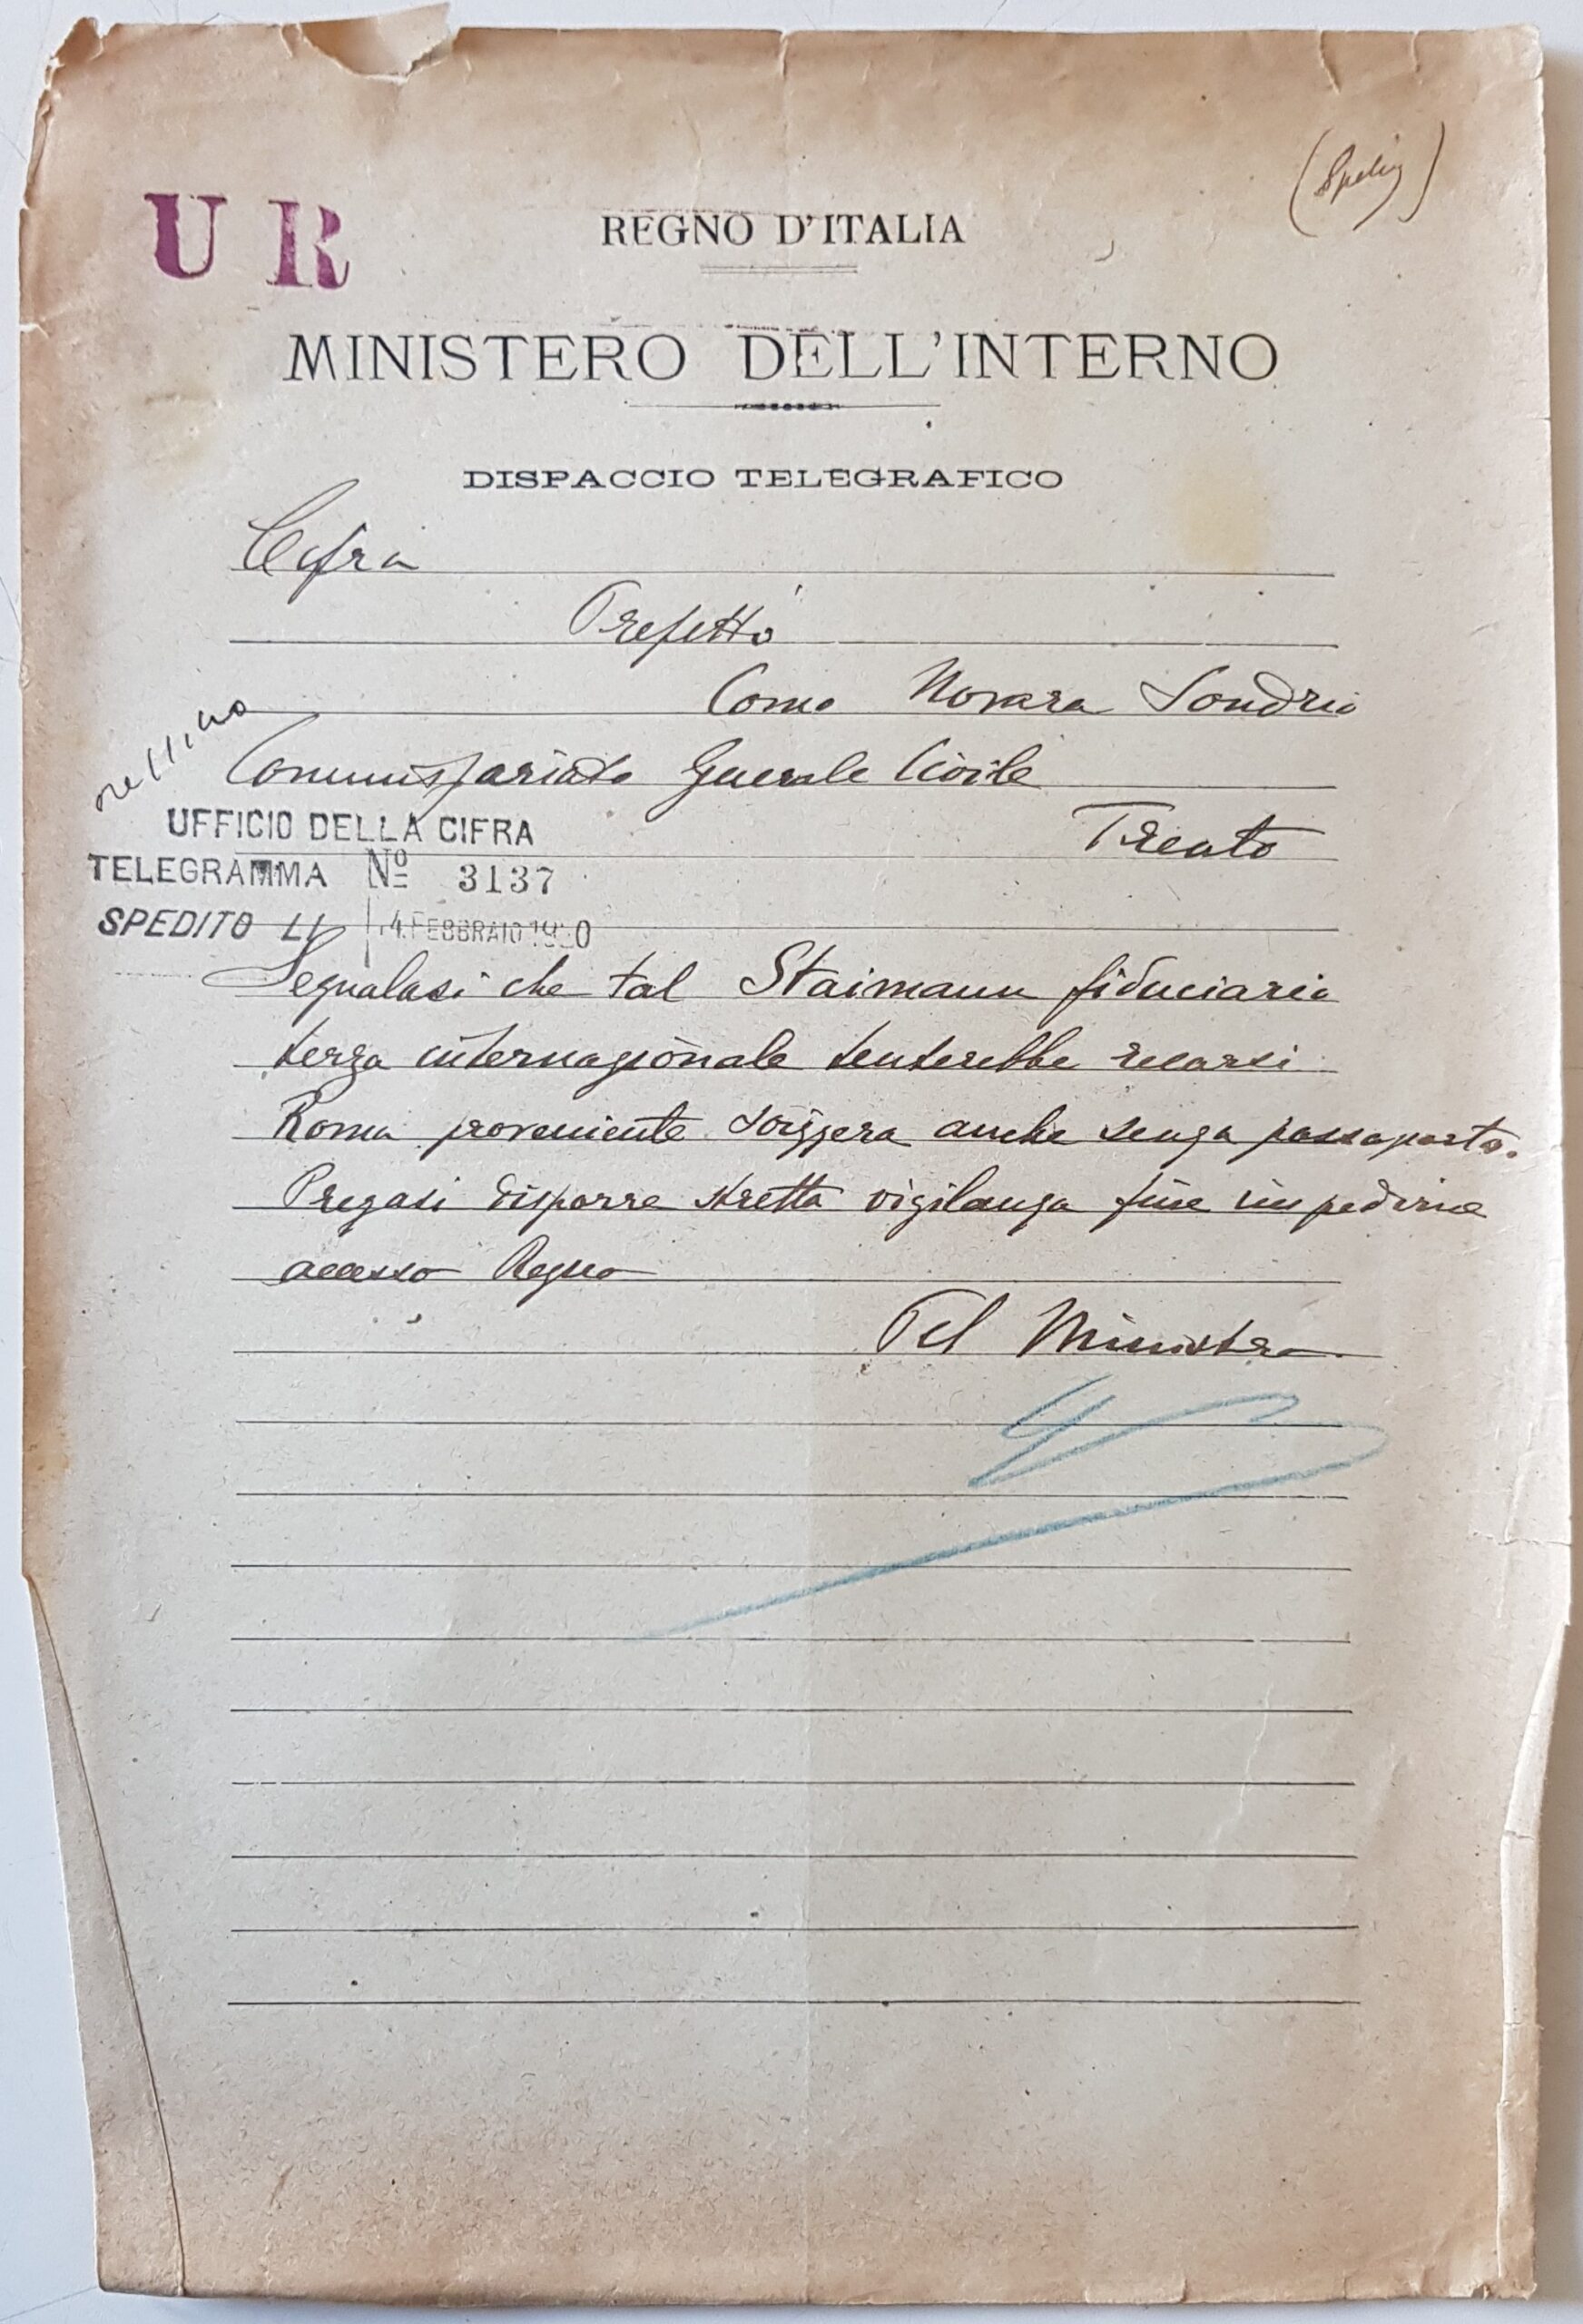 U R
REGNO D'ITALIA
MINISTERO DELL'INTERNO
DISPACCIO TELEGRAFICO
Cifra
Prefetto
Como Novara Sondrio
Commissariato Generale Civile
Trento
UFFICIO DELLA CIFRA
TELEGRAMMA Nº 3137
SPEDITO LI 4 FEBBRAIO 1920
Segnalasi che tal Staimann fiduciario
terza internazionale tenterebbe recarsi
Roma proveniente Svizzera anche senza passaporto.
Pregasi disporre stretta vigilanza fine impedirne
accesso Regno
Pel Ministro